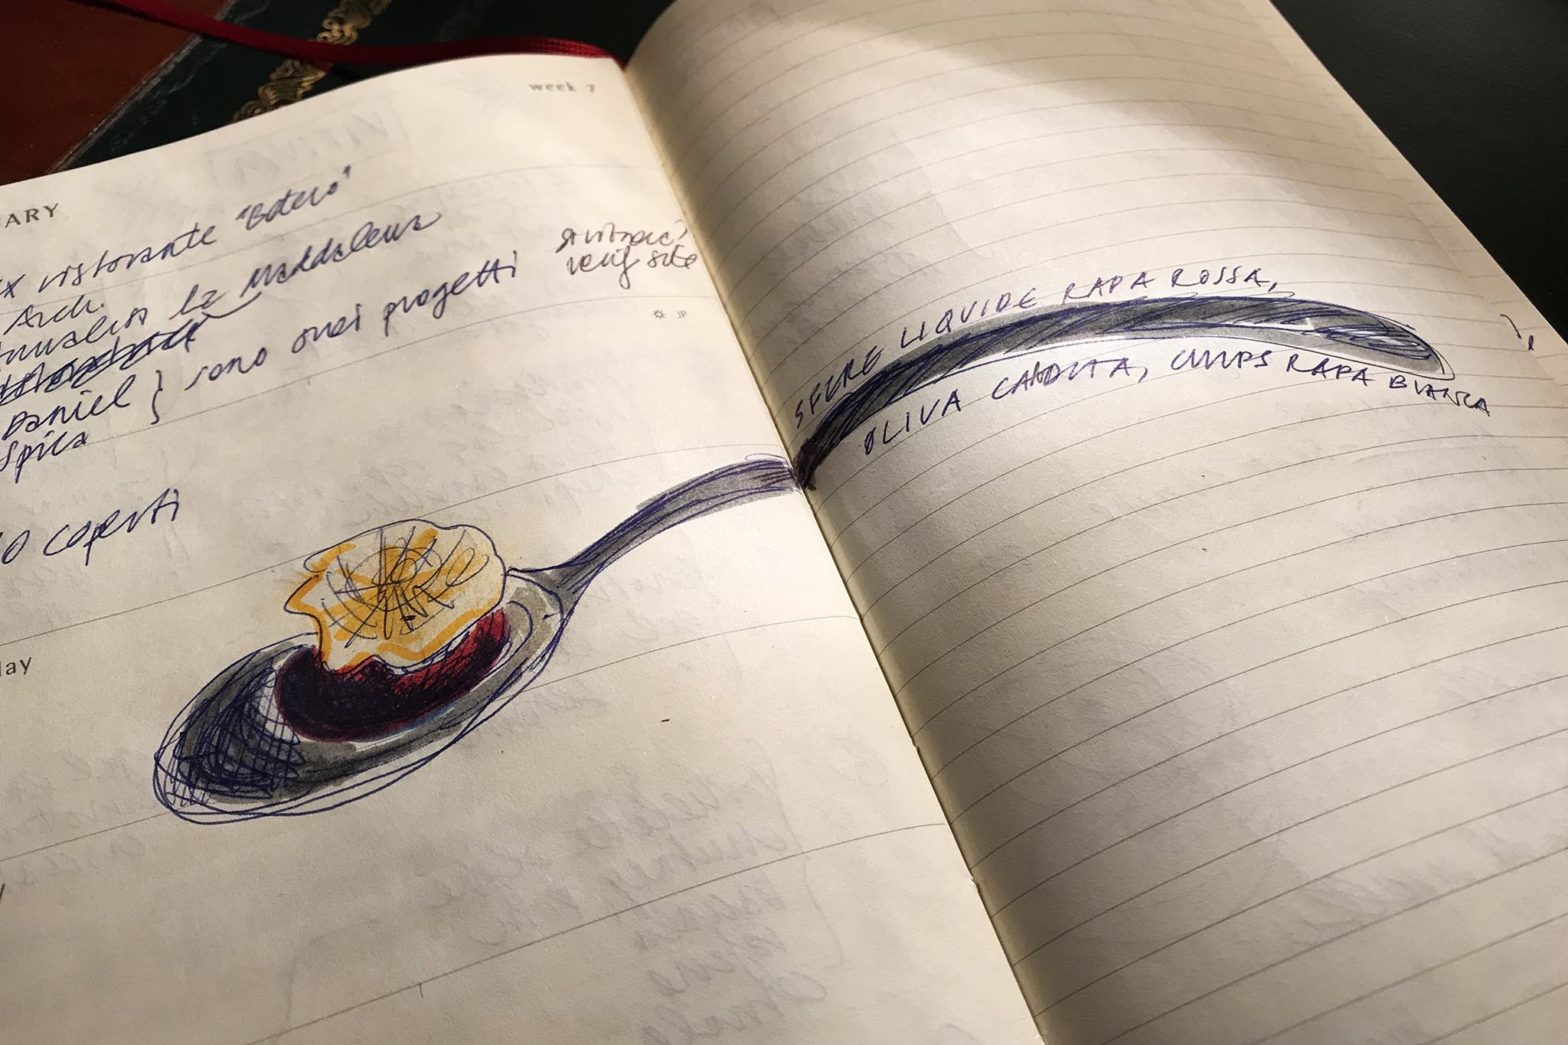 week 7
ARY
x ristorante "Botero"
Arch.
la Maddalena
Daniel } sono miei progetti
Spica
ristruc.
verif site
o coperti
lay
SFERE LIQUIDE RAPA ROSSA,
OLIVA CANDITA, CHIPS RAPA BIANCA